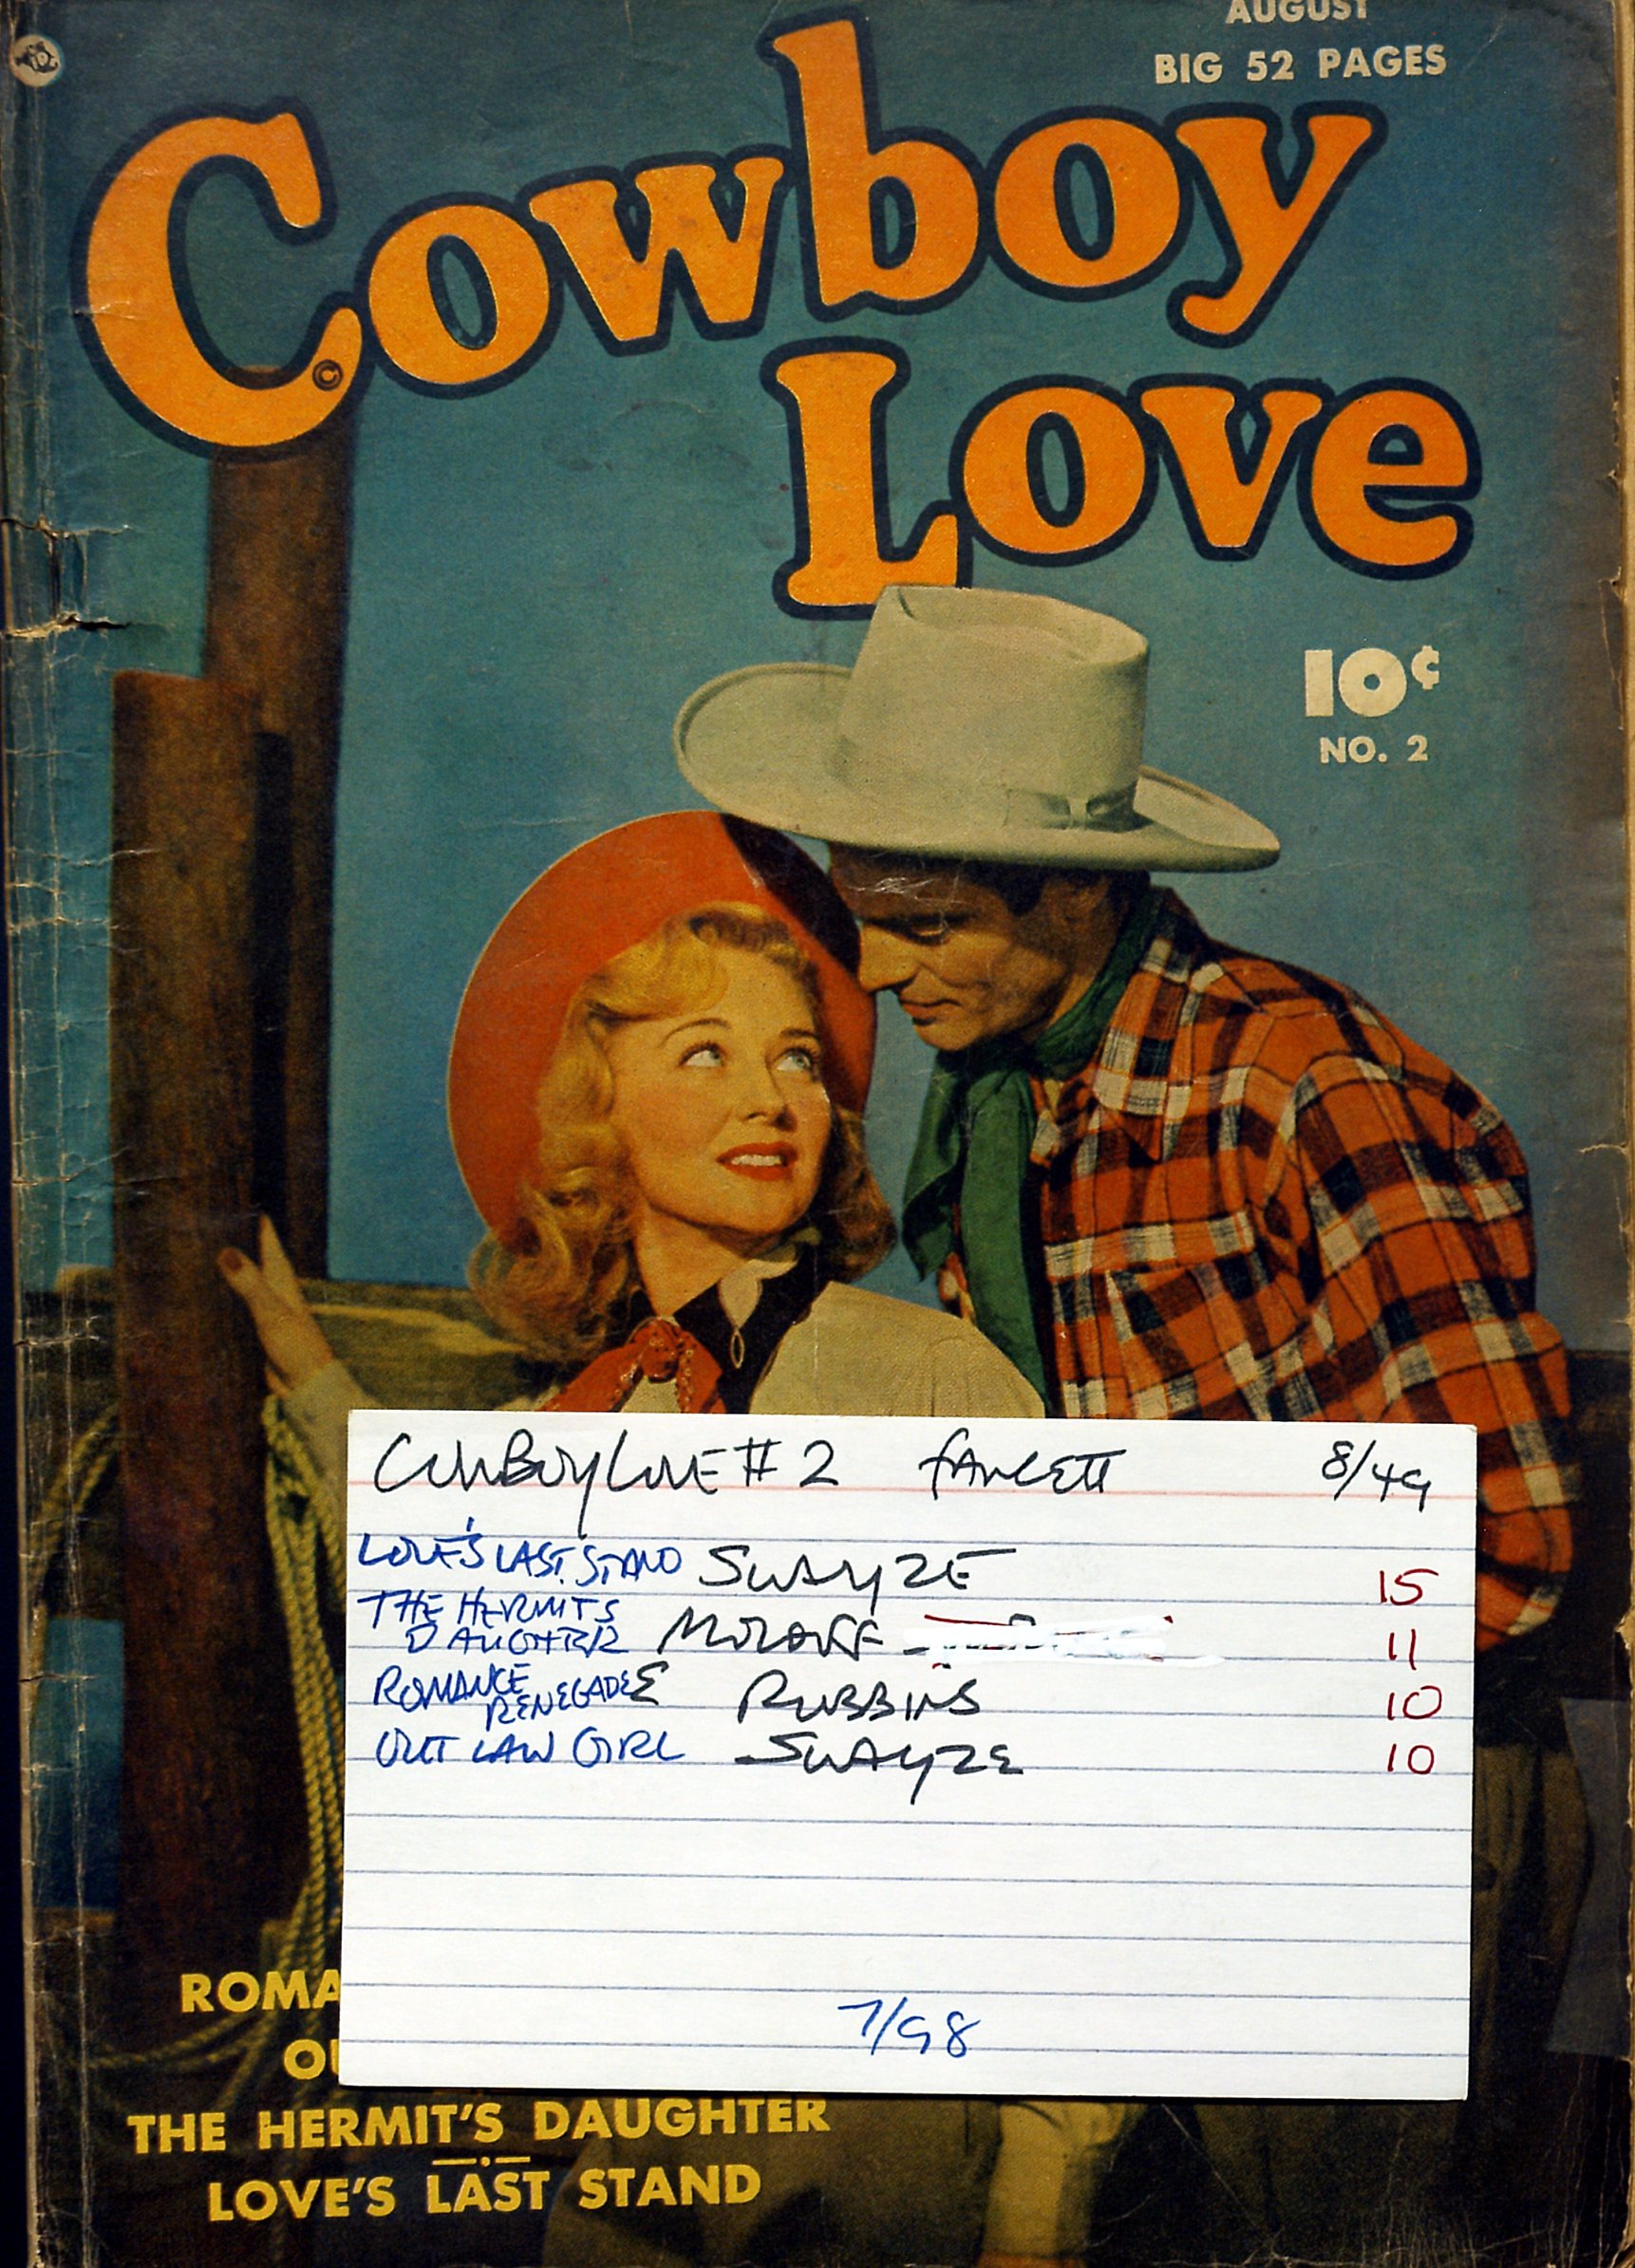 AUGUST
BIG 52 PAGES
Cowboy
©
Love
10¢
NO. 2
COWBOY LOVE #2 FAWCETT 8/49
LOVE'S LAST STAND SWAYZE 15
THE HERMITS
DAUGHTER 11
ROMANCE
RENEGADE RUBBINS 10
OUTLAW GIRL SWAYZE 10
7/98
ROMA
OU
THE HERMIT'S DAUGHTER
LOVE'S LAST STAND